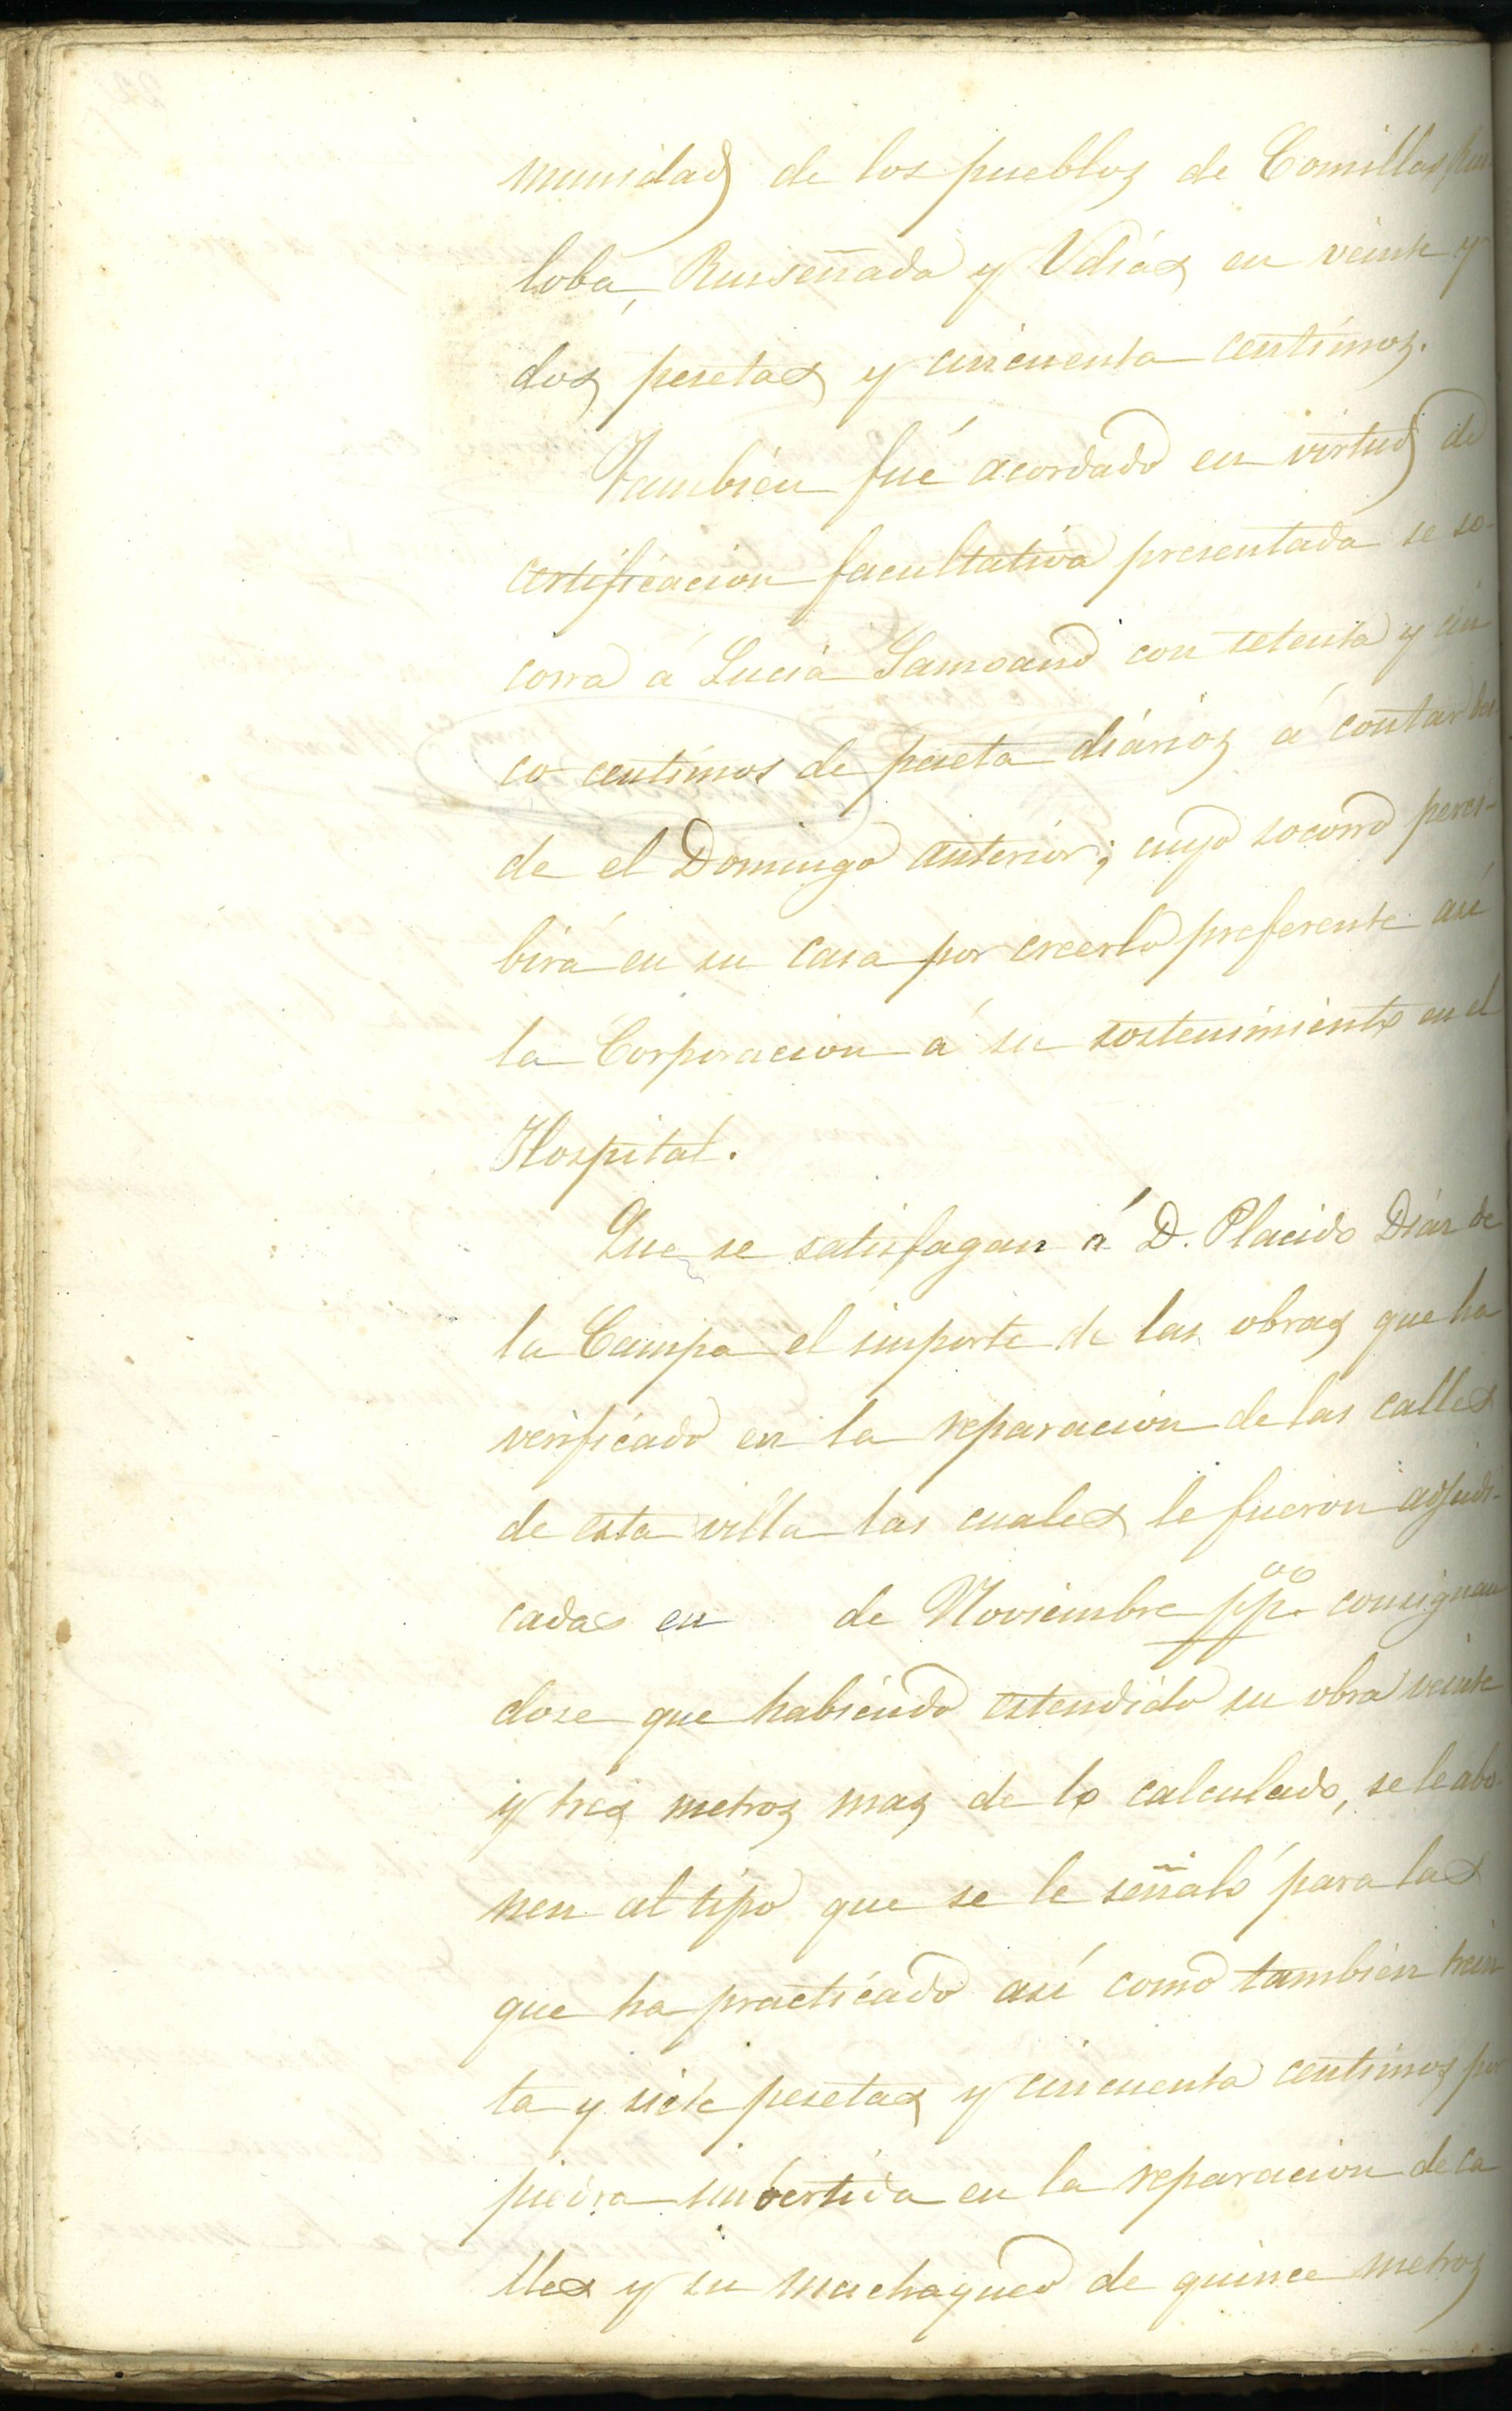 munidad de los pueblos de Comillas, Rui
loba, Ruiseñada y Udías en veinte y
dos pesetas y cincuenta centimos.
Tambien fué acordado en virtud de
certificacion facultativa presentada se so-
corra á Lucia con setenta y cin
co centimos de peseta diarios á contar des
de el Domingo anterior; cuyo socorro perci-
birá en su casa por creerlo preferente asi
la Corporacion á su sostenimiento en el
Hospital.
Que se satisfagan á D. Placido Diaz de
la Campa el importe de las obras que ha
verificado en la reparacion de las calles
de esta villa las cuales le fueron adjudi-
cadas en de Noviembre ppº consignan
dose que habiendo estendido su obra veinte
y tres metros mas de lo calculado, se le abo-
nen al tipo que se le señaló para las
que ha practicado así como tambien trein
ta y siete pesetas y cincuenta centimos por
piedra imbertida en la reparacion de ca
lles y su machaqueo de quince metros